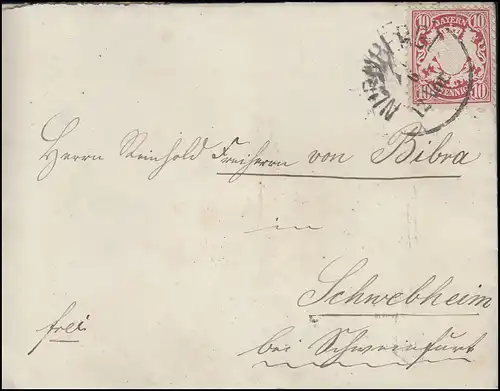 10 BAYERN 10
PFENNIG 10
NÜRNBERG
Herrn Reinhold Freiherrn von Bibra
in
Schwebheim
frei
bei Schweinfurt